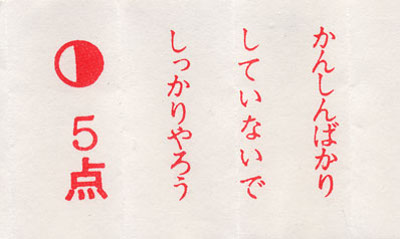 かんしんばかり
していないで
しっかりやろう
5点